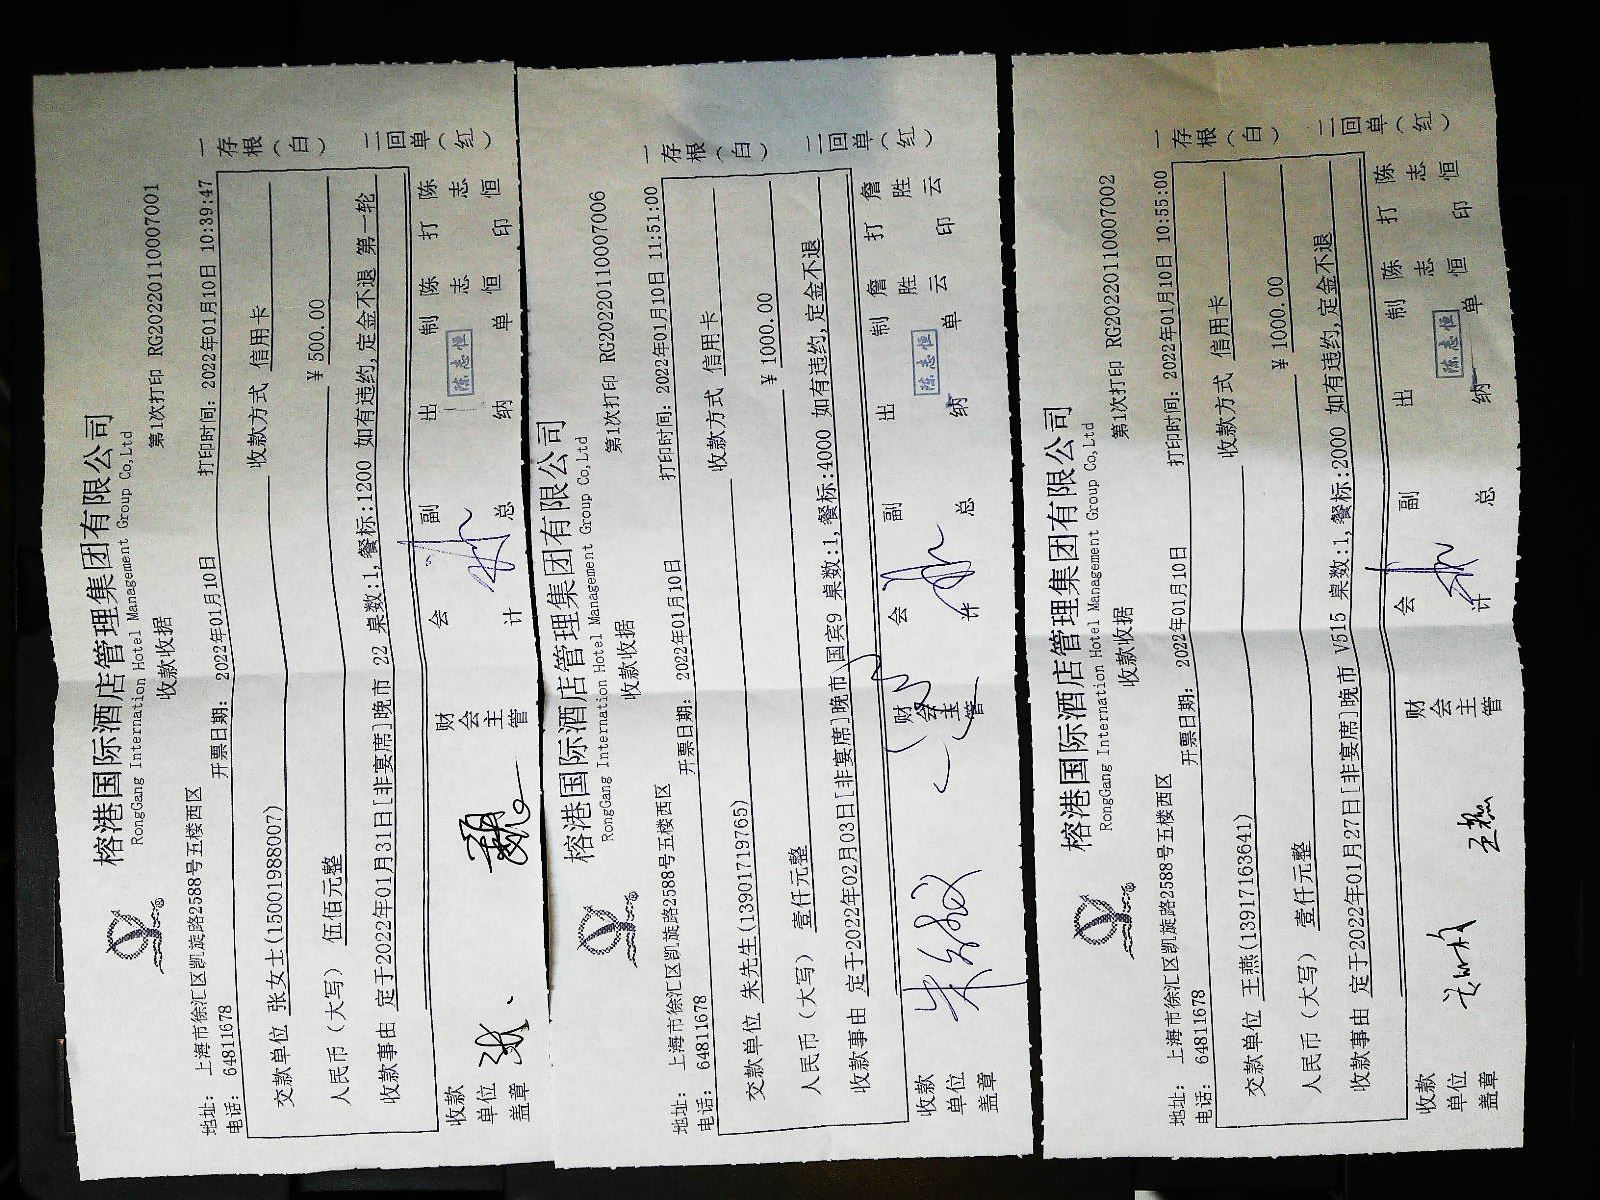 榕港国际酒店管理集团有限公司
RongGang International Hotel Management Group Co,Ltd
收款收据 第1次打印 RG20220110007001
地址： 上海市徐汇区凯旋路2588号五楼西区
电话： 64811678 开票日期： 2022年01月10日 打印时间： 2022年01月10日 10:39:47
交款单位 张女士(15001988007) 收款方式 信用卡
人民币（大写） 伍佰元整 ¥ 500.00
收款事由 定于2022年01月31日[非宴席]晚市 22 桌数:1,餐标:1200 如有违约,定金不退 第一轮
收款单位盖章 财会主管 会计 副总 出纳 制单 陈志恒 打印 陈志恒
陈志恒
一存根（白） 二回单（红）
榕港国际酒店管理集团有限公司
RongGang International Hotel Management Group Co,Ltd
收款收据 第1次打印 RG20220110007006
地址： 上海市徐汇区凯旋路2588号五楼西区
电话： 64811678 开票日期： 2022年01月10日 打印时间： 2022年01月10日 11:51:00
交款单位 朱先生(13901719765) 收款方式 信用卡
人民币（大写） 壹仟元整 ¥ 1000.00
收款事由 定于2022年02月03日[非宴席]晚市 国宾9 桌数:1,餐标:4000 如有违约,定金不退
收款单位盖章 财会主管 会计 副总 出纳 制单 詹胜云 打印 詹胜云
陈志恒
一存根（白） 二回单（红）
榕港国际酒店管理集团有限公司
RongGang International Hotel Management Group Co,Ltd
收款收据 第1次打印 RG20220110007002
地址： 上海市徐汇区凯旋路2588号五楼西区
电话： 64811678 开票日期： 2022年01月10日 打印时间： 2022年01月10日 10:55:00
交款单位 王燕(13917163641) 收款方式 信用卡
人民币（大写） 壹仟元整 ¥ 1000.00
收款事由 定于2022年01月27日[非宴席]晚市 V515 桌数:1,餐标:2000 如有违约,定金不退
收款单位盖章 王燕 财会主管 会计 副总 出纳 制单 陈志恒 打印 陈志恒
陈志恒
一存根（白） 二回单（红）